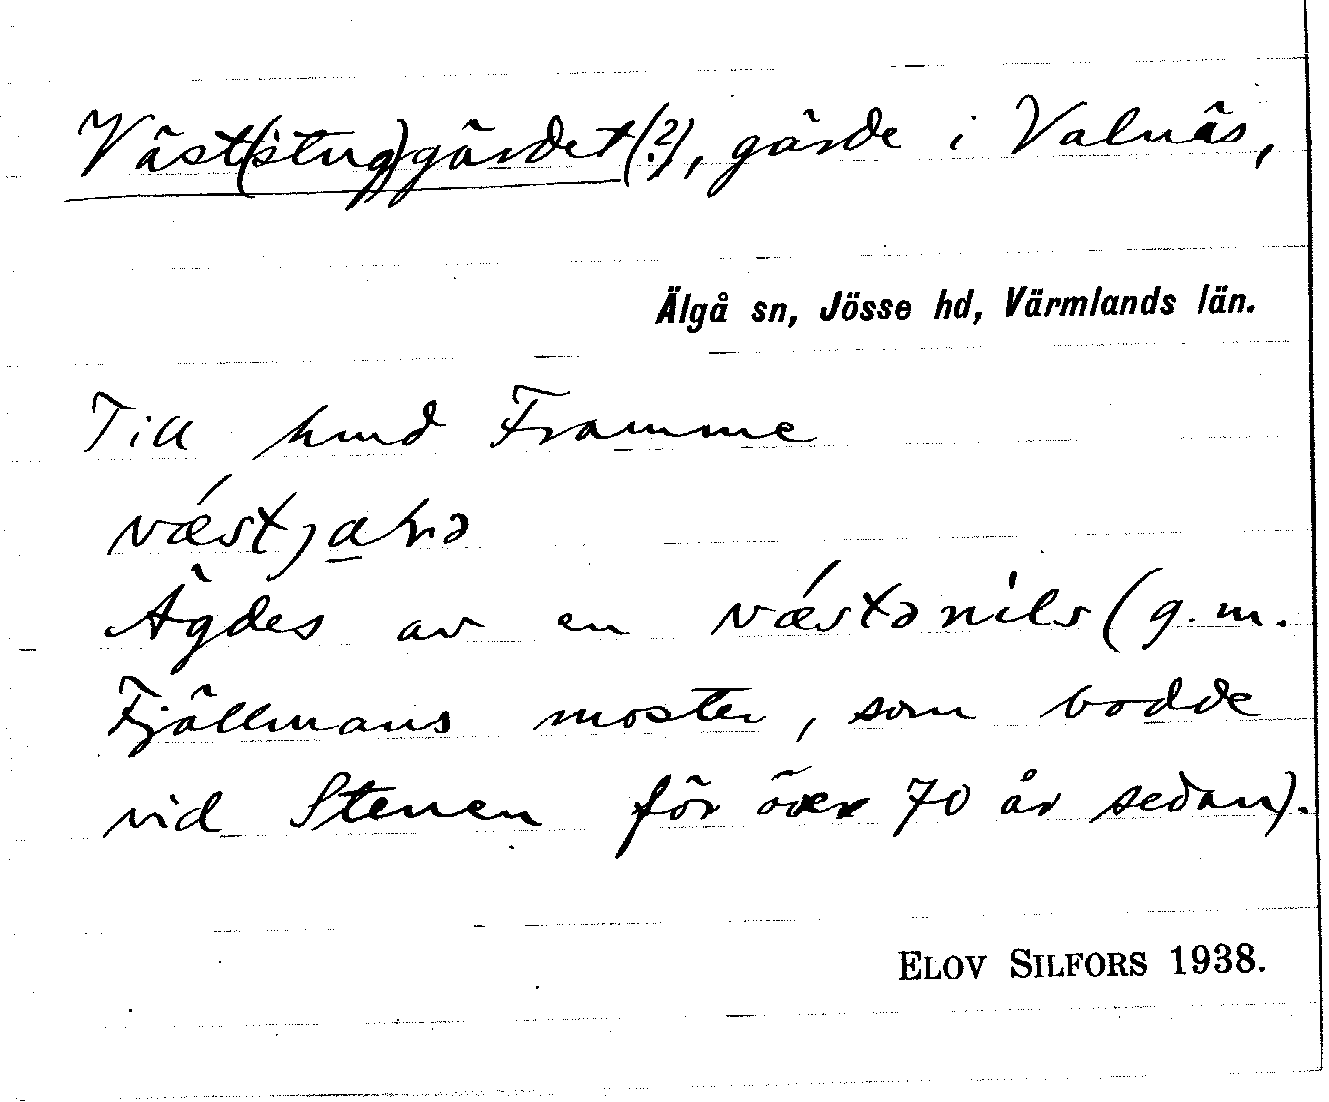 Väst(stug)gärdet(?), gärde i Valnäs,
Älgå sn, Jösse hd, Värmlands län.
Till hmd Framme
vǽstjaḷɂə
Ägdes av en vǽstənìls (g. m.
Fjällmans moster, som bodde
vid Stenen för över 70 år sedan).
ELOV SILFORS 1938.